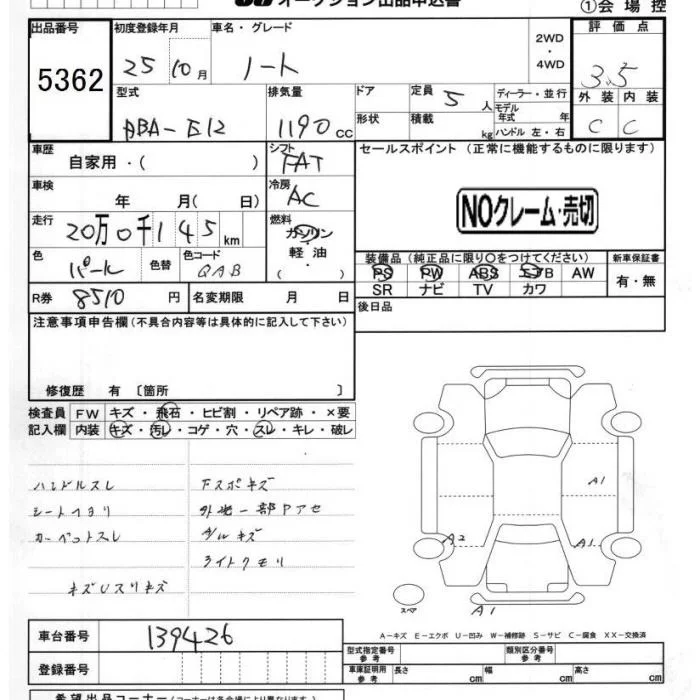 オークション出品申込書
①会場控
出品番号 初度登録年月 車名・グレード 評価点
5362 25 10月 ノート 2WD・4WD 3.5
型式 排気量 ドア 定員 5人 ディーラー・並行 外装 内装
DBA-E12 1190cc 形状 積載 kg モデル年式 年 ハンドル 左・右 C C
車歴 シフト セールスポイント(正常に機能するものに限ります)
自家用・( ) FAT
車検 冷房 NOクレーム・売切
年 月(日) AC
走行 燃料
20万0千145km ガソリン
軽油
( ・ )
色 パール 色替 色コード QAB
装備品(純正品に限り○をつけてください) 新車保証書
PS PW ABS エアB AW 有・無
SR ナビ TV カワ
R券 8510円 名変期限 月 日 後日品
注意事項申告欄(不具合内容等は具体的に記入して下さい)
修復歴 有 〔箇所 〕
検査員 FW キズ・飛石・ヒビ割・リペア跡・×要
記入欄 内装 キズ・汚レ・コゲ・穴・スレ・キレ・破レ
ハンドルスレ FスポキズA1
シートヘタリ 外装一部PアセA2 A1
カーペットスレ ホイルキズ
ライトクモリ
キズUスリキズ
スペア A1
A-キズ E-エクボ U-凹み W-補修跡 S-サビ C-腐食 XX-交換済
車台番号 139426
型式指定番号 参考 類別区分番号 参考
登録番号 車庫証明用 参考 長さ cm 幅 cm 高さ cm
希望出品コーナー(コーナーは各会場により異なります)